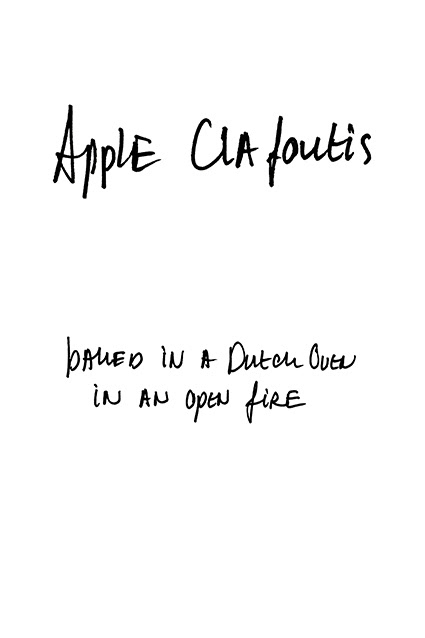 Apple Clafoutis
baked in a Dutch Oven
in an open fire